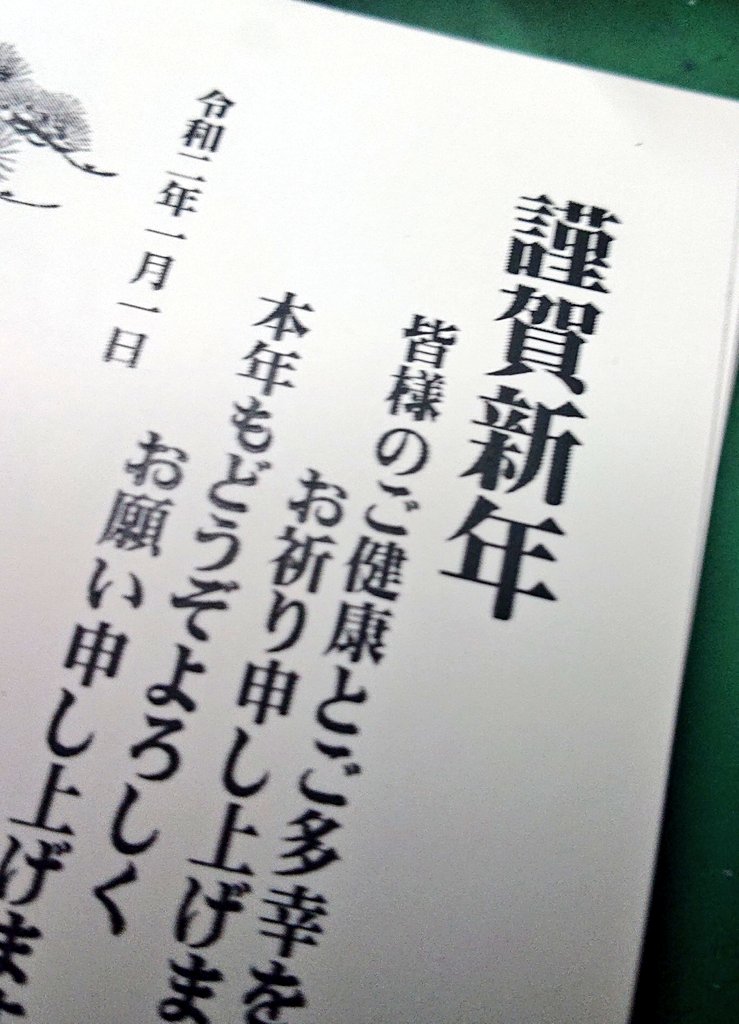 謹賀新年
皆様のご健康とご多幸を
お祈り申し上げま
本年もどうぞよろしく
お願い申し上げま
令和二年一月一日